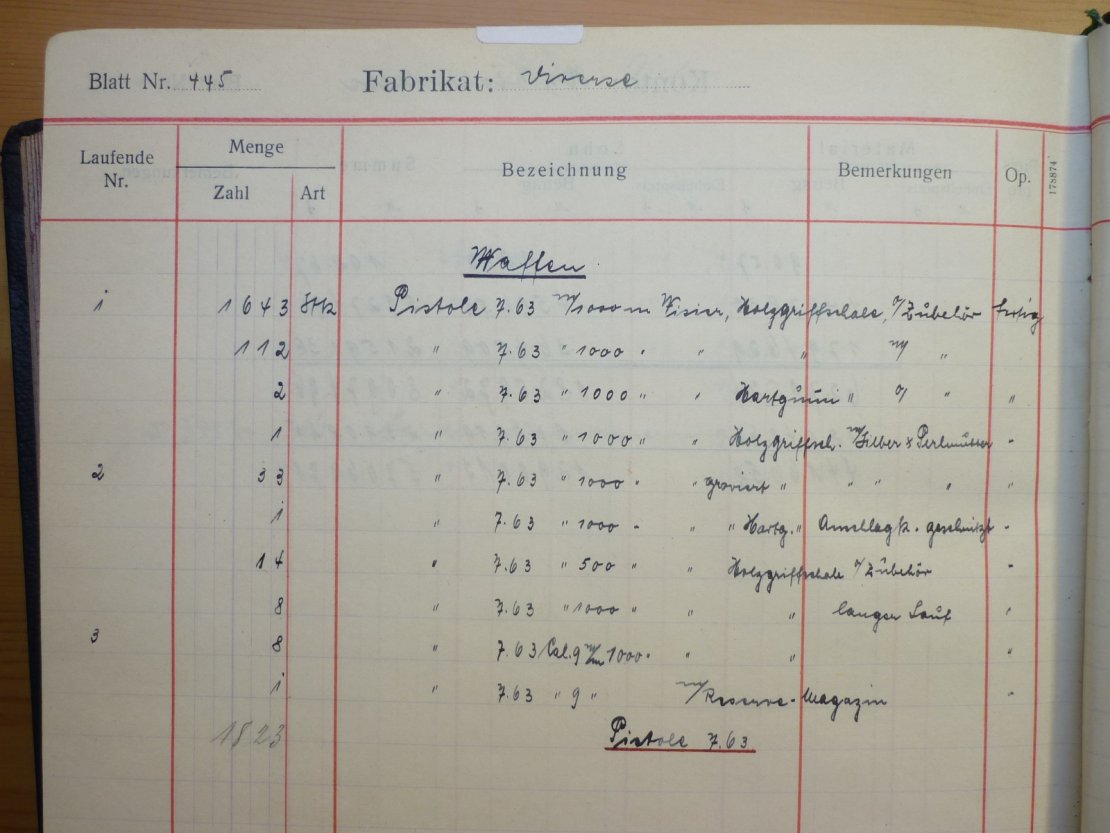 Blatt Nr. 445 Fabrikat: Diverse
Laufende Nr. Menge Zahl Art Bezeichnung Bemerkungen Op. 178874
Waffen
1 1643 Stk Pistole 7.63 m/1000 m Visier, Holzgriffschale, o/Zubehör fertig
112 " 7.63 " 1000 " " " m/ "
2 " 7.63 " 1000 " " Hartgummi " o/ " "
1 " 7.63 " 1000 " " Holzgriffsch. m/Silber & Perlmutter "
2 33 " 7.63 " 1000 " " graviert " " " " "
1 " 7.63 " 1000 " " " Hartg. " Anschlagk. geschnitzt "
14 " 7.63 " 500 " " Holzgriffschale o/Zubehör "
8 " 7.63 " 1000 " " " langer Lauf "
3 8 " 7.63 Cal. 9 m/m 1000 " " " "
1 " 7.63 " 9 " m/Reserve-Magazin "
1823 Pistole 7.63